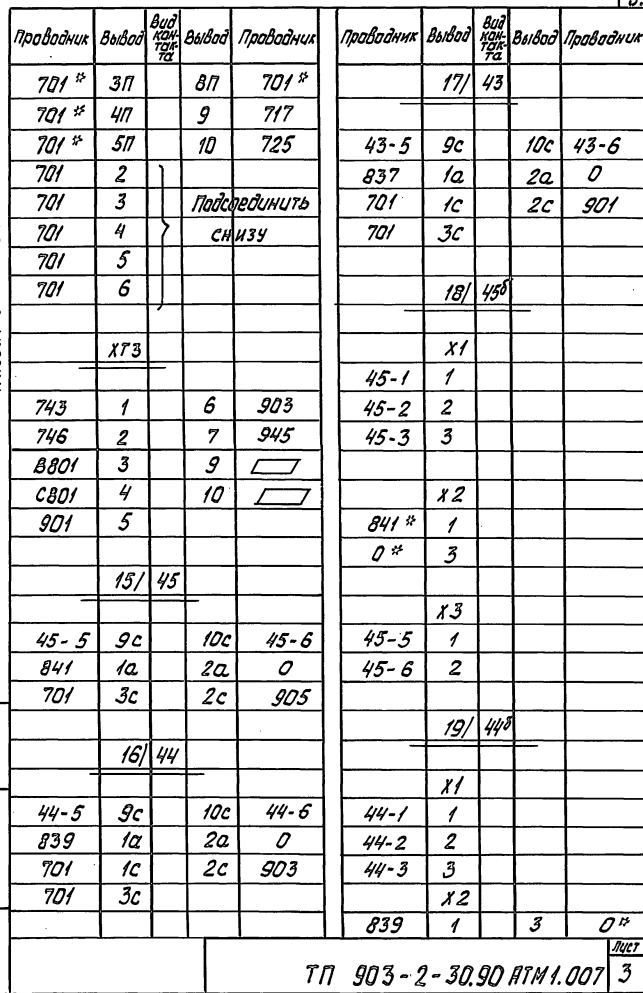 Проводник Вывод Вид контакта Вывод Проводник
701* 3П 8П 701*
701* 4П 9 717
701* 5П 10 725
701 2
701 3 Подсоединить
701 4 снизу
701 5
701 6
ХТ3
743 1 6 903
746 2 7 945
В801 3 9
С801 4 10
901 5
15/ 45
45-5 9с 10с 45-6
841 1а 2а 0
701 3с 2с 905
16/ 44
44-5 9с 10с 44-6
839 1а 2а 0
701 1с 2с 903
701 3с
Проводник Вывод Вид контакта Вывод Проводник
17/ 43
43-5 9с 10с 43-6
837 1а 2а 0
701 1с 2с 901
701 3с
18/ 45б
Х1
45-1 1
45-2 2
45-3 3
Х2
841* 1
0* 3
Х3
45-5 1
45-6 2
19/ 44б
Х1
44-1 1
44-2 2
44-3 3
Х2
839 1 3 0*
ТП 903-2-30.90 АТМ1.007
Лист
3